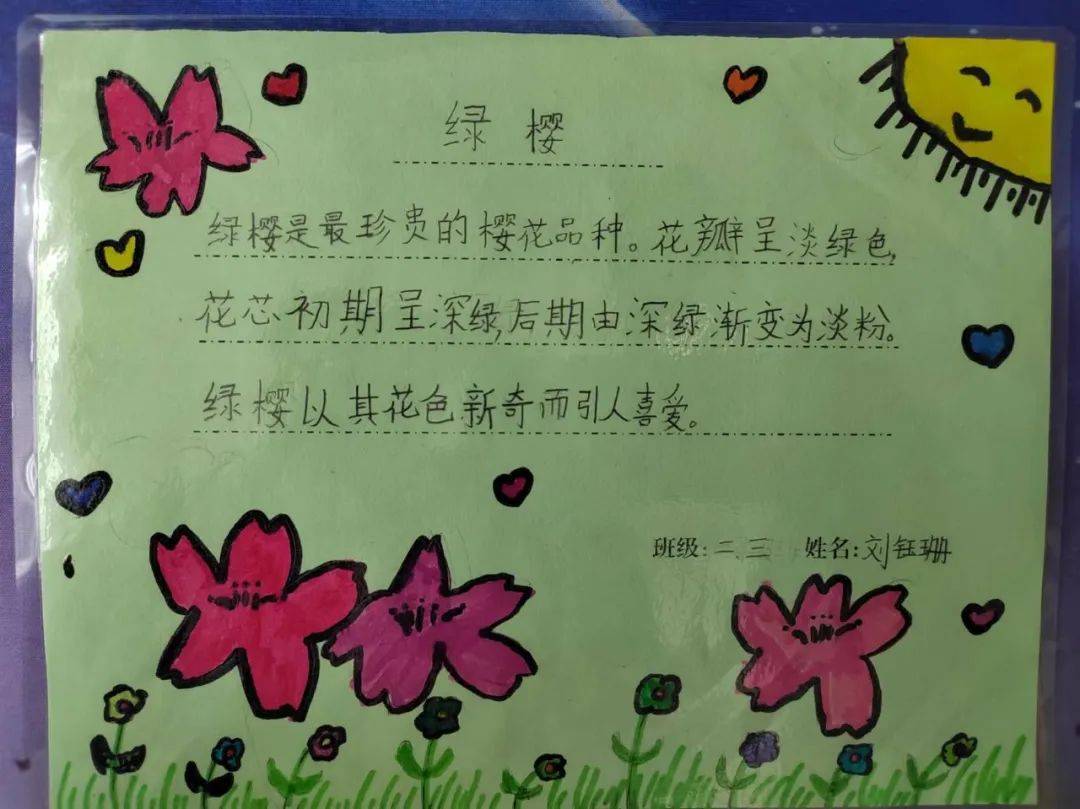 绿樱
绿樱是最珍贵的樱花品种。花瓣呈淡绿色,
花芯初期呈深绿,后期由深绿渐变为淡粉。
绿樱以其花色新奇而引人喜爱。
班级:二、三 姓名:刘钰珊